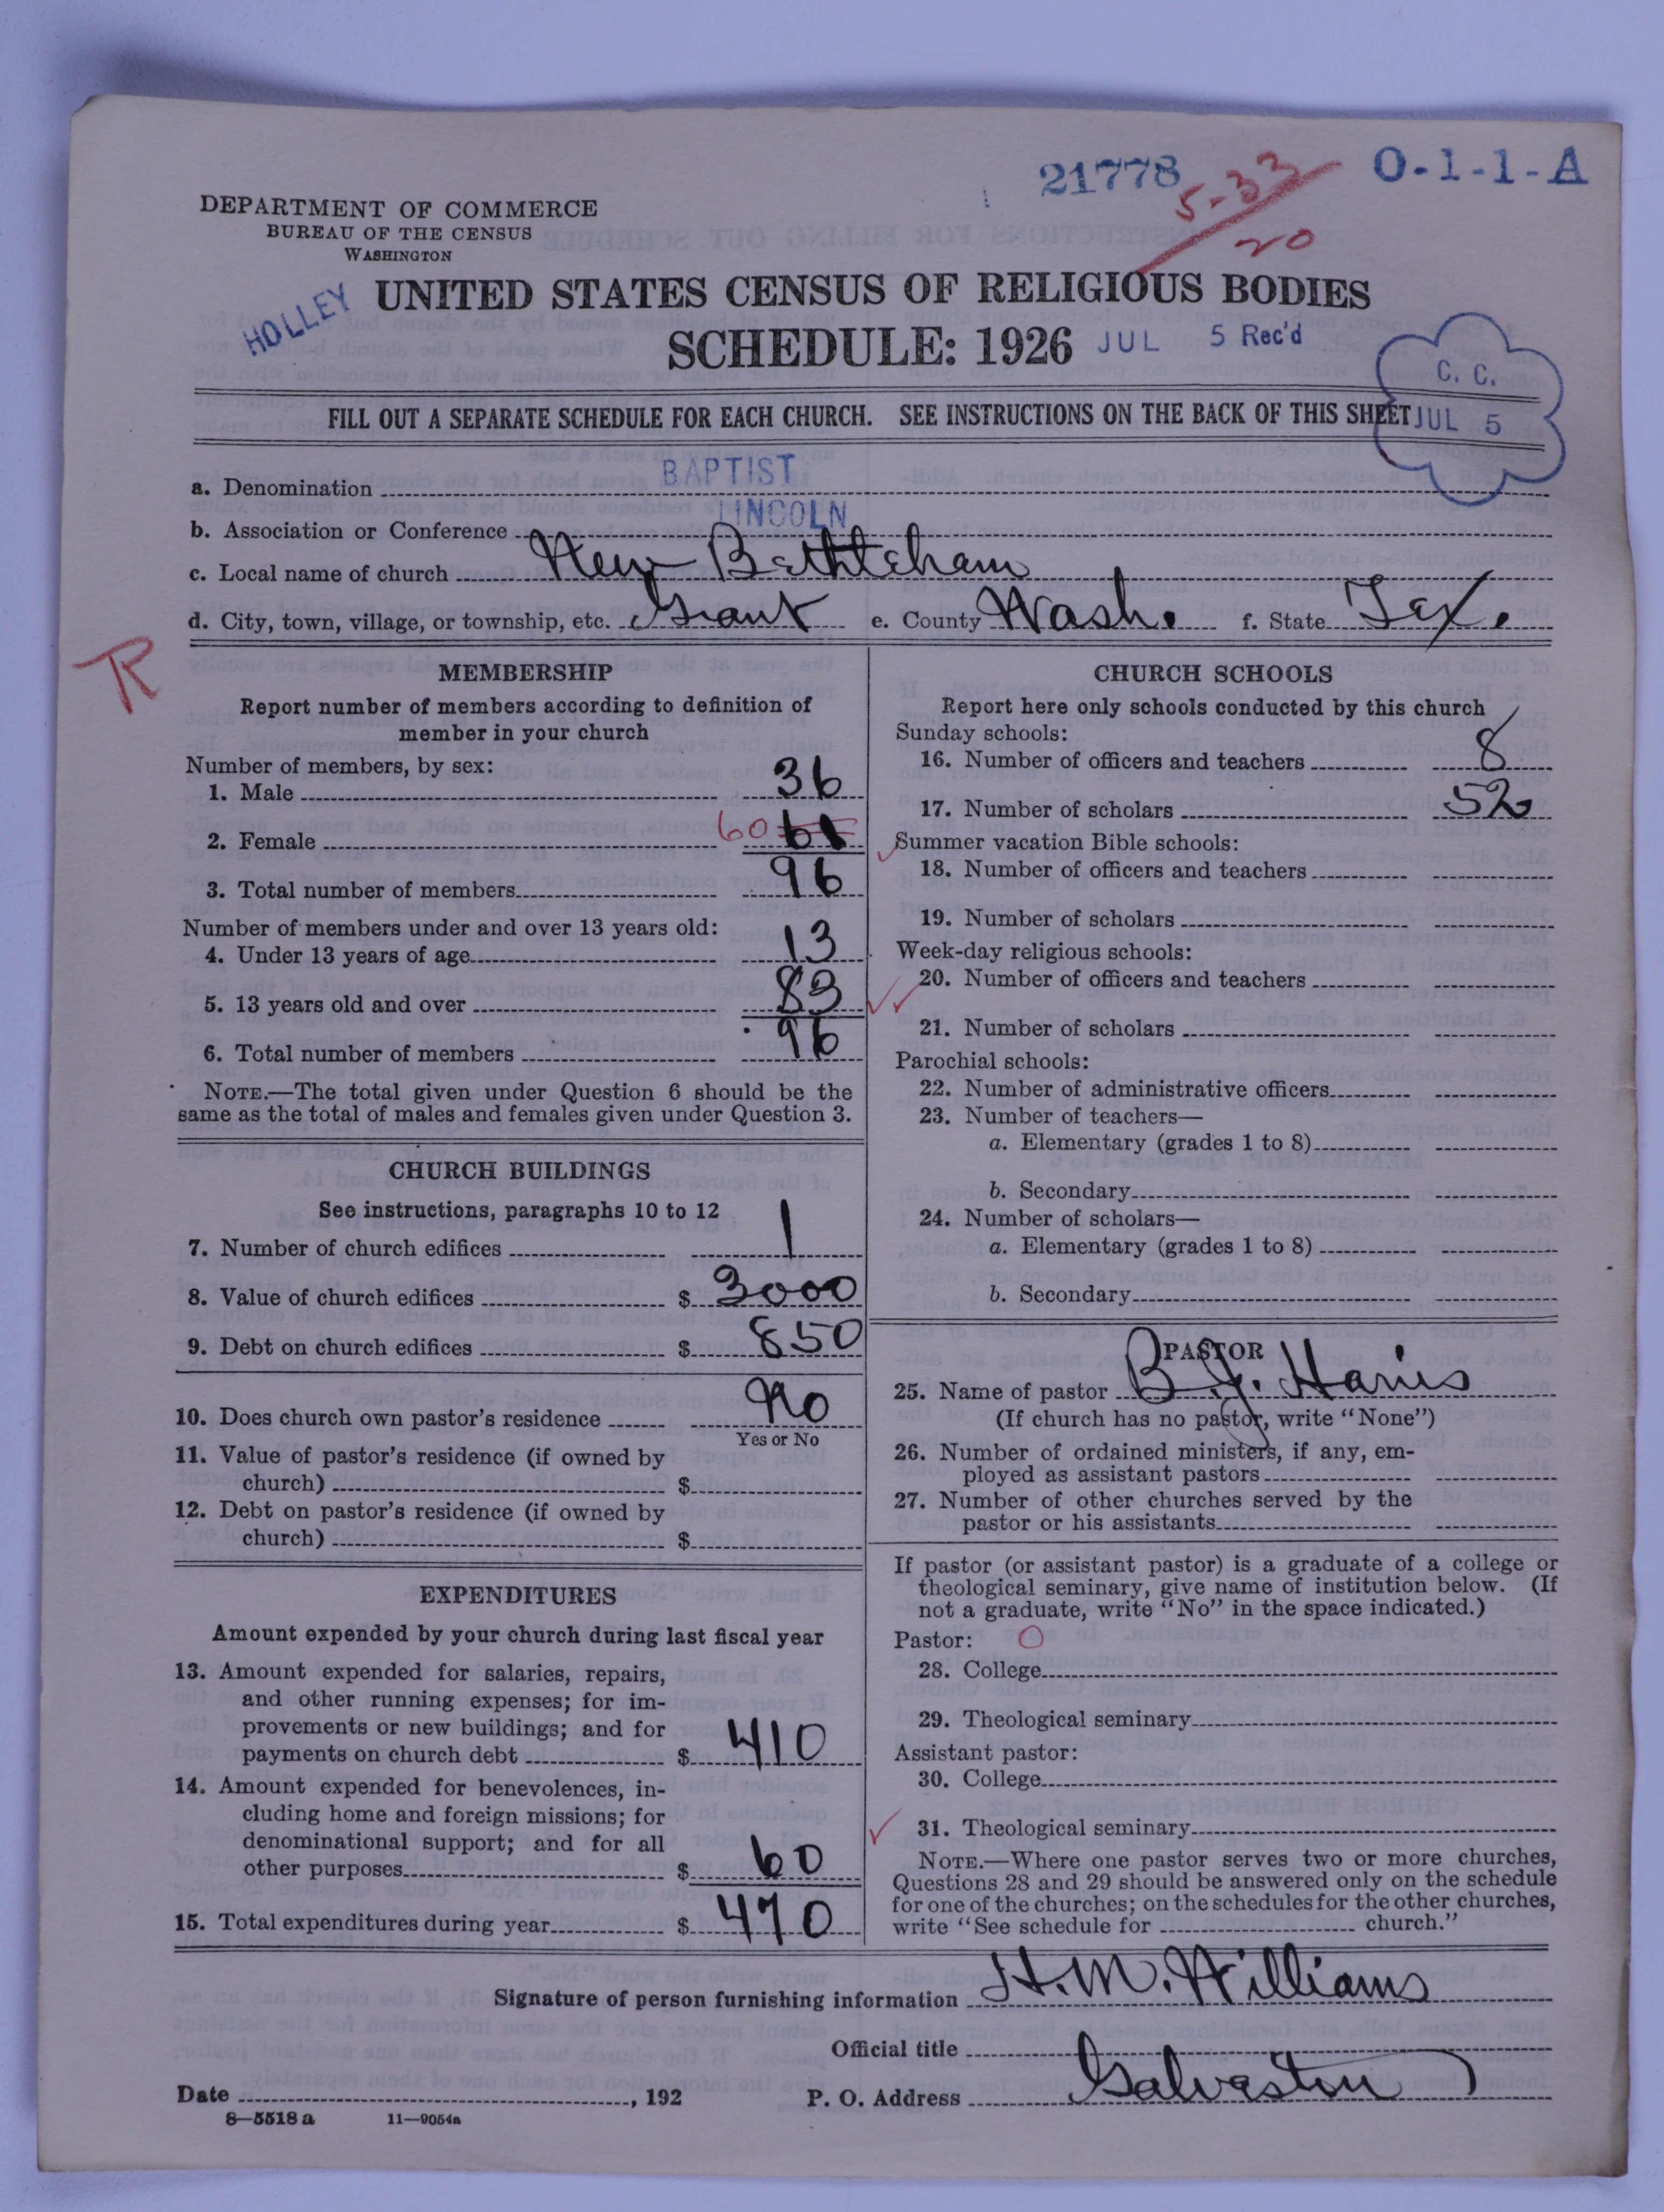 21778
5-33
20
O-1-1-A
DEPARTMENT OF COMMERCE
BUREAU OF THE CENSUS
WASHINGTON
HOLLEY
UNITED STATES CENSUS OF RELIGIOUS BODIES
SCHEDULE: 1926 JUL 5 Rec'd
C. C.
JUL 5
FILL OUT A SEPARATE SCHEDULE FOR EACH CHURCH. SEE INSTRUCTIONS ON THE BACK OF THIS SHEET
a. Denomination BAPTIST
b. Association or Conference LINCOLN
c. Local name of church New
d. City, town, village, or township, etc. Grant e. County Wash. f. State Tex.
R
MEMBERSHIP
Report number of members according to definition of
member in your church
Number of members, by sex:
1. Male 36
2. Female 60 61
3. Total number of members 96
Number of members under and over 13 years old:
4. Under 13 years of age 13
5. 13 years old and over 83
6. Total number of members 96
NOTE.—The total given under Question 6 should be the
same as the total of males and females given under Question 3.
CHURCH BUILDINGS
See instructions, paragraphs 10 to 12
7. Number of church edifices 1
8. Value of church edifices $ 3000
9. Debt on church edifices $ 850
10. Does church own pastor's residence No
Yes or No
11. Value of pastor's residence (if owned by
church) $
12. Debt on pastor's residence (if owned by
church) $
EXPENDITURES
Amount expended by your church during last fiscal year
13. Amount expended for salaries, repairs,
and other running expenses; for im-
provements or new buildings; and for
payments on church debt $ 410
14. Amount expended for benevolences, in-
cluding home and foreign missions; for
denominational support; and for all
other purposes $ 60
15. Total expenditures during year $ 470
CHURCH SCHOOLS
Report here only schools conducted by this church
Sunday schools:
16. Number of officers and teachers 8
17. Number of scholars 52
Summer vacation Bible schools:
18. Number of officers and teachers
19. Number of scholars
Week-day religious schools:
20. Number of officers and teachers
21. Number of scholars
Parochial schools:
22. Number of administrative officers
23. Number of teachers—
a. Elementary (grades 1 to 8)
b. Secondary
24. Number of scholars—
a. Elementary (grades 1 to 8)
b. Secondary
PASTOR
25. Name of pastor B. J. Harris
(If church has no pastor, write "None")
26. Number of ordained ministers, if any, em-
ployed as assistant pastors
27. Number of other churches served by the
pastor or his assistants
If pastor (or assistant pastor) is a graduate of a college or
theological seminary, give name of institution below. (If
not a graduate, write "No" in the space indicated.)
Pastor: O
28. College
29. Theological seminary
Assistant pastor:
30. College
31. Theological seminary
NOTE.—Where one pastor serves two or more churches,
Questions 28 and 29 should be answered only on the schedule
for one of the churches; on the schedules for the other churches,
write "See schedule for church."
Signature of person furnishing information H. M. Williams
Official title
Date , 192 P. O. Address Galveston
8—5518 a 11—9054a